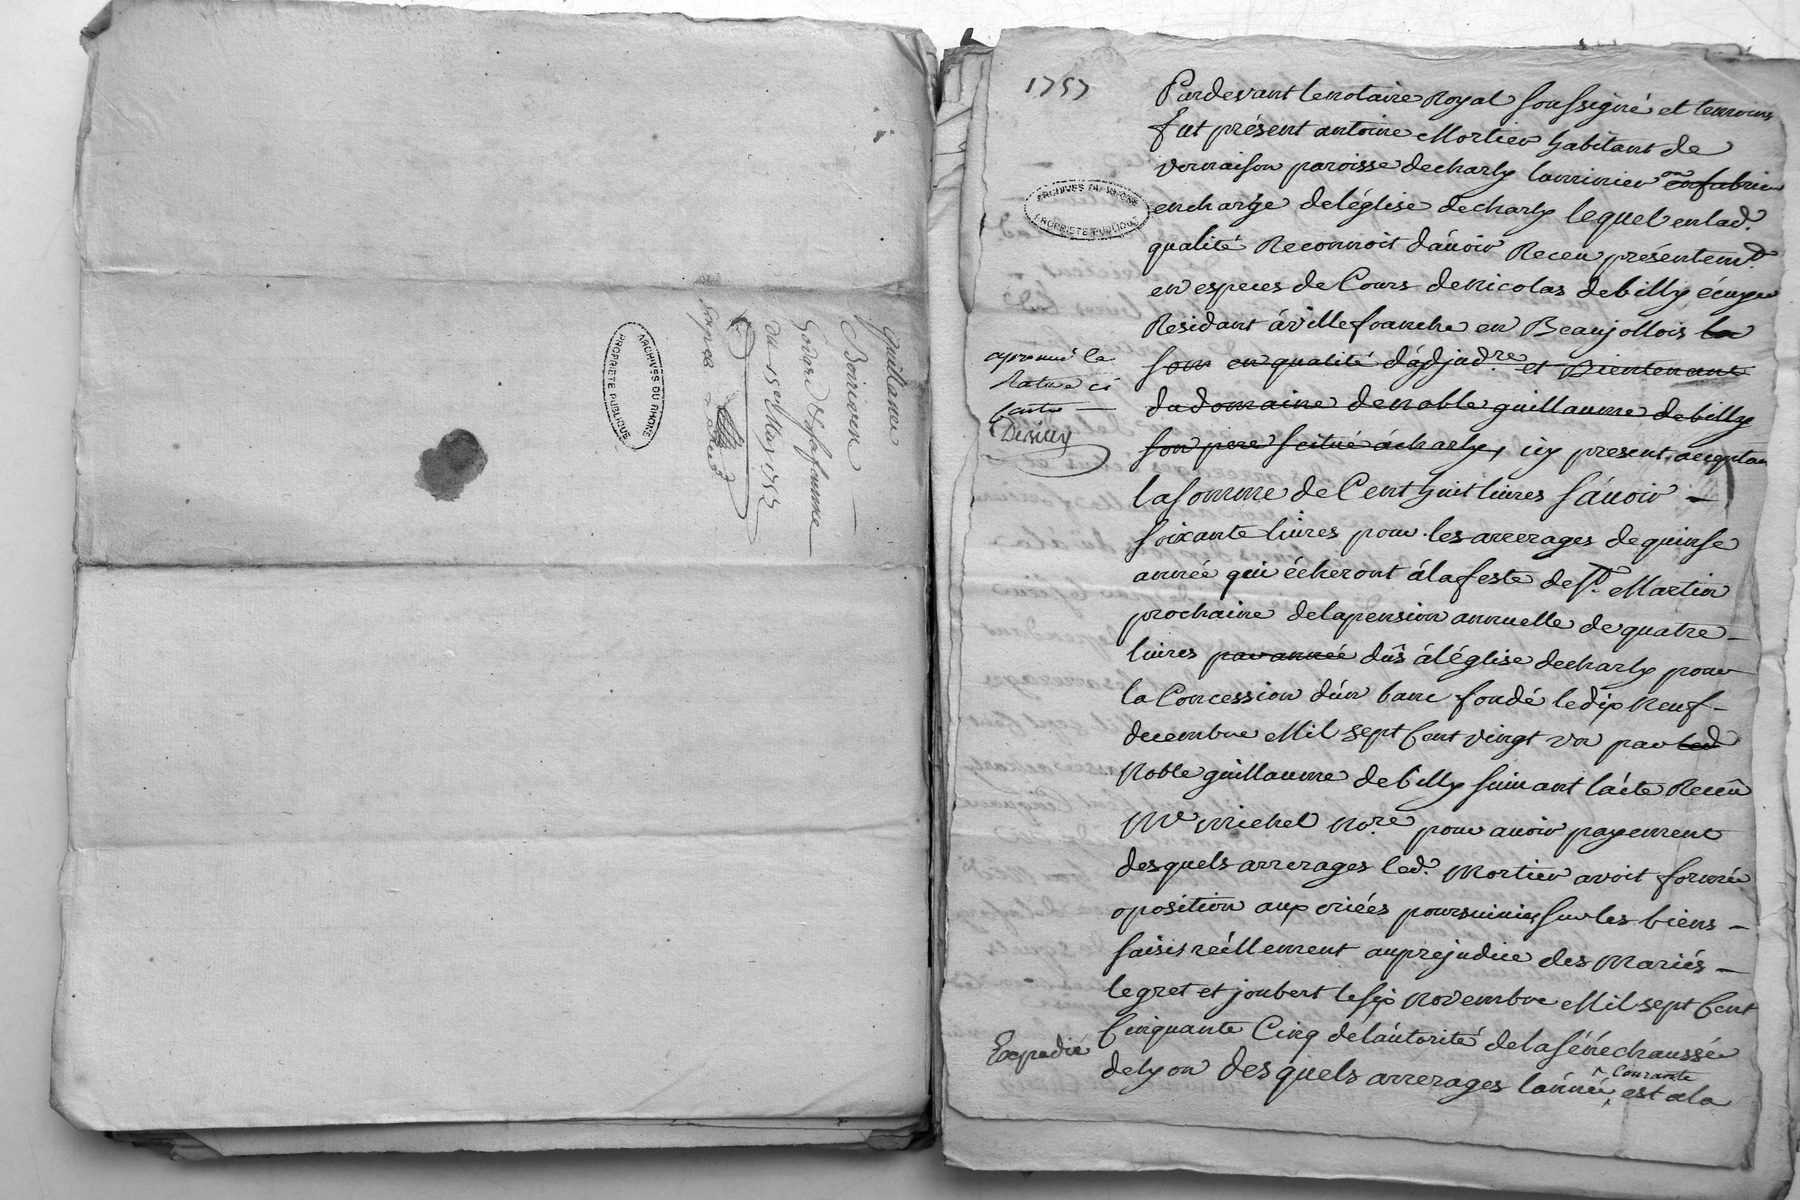 quittance
Boiriven
Godard & sa femme
du 15e May 1757
ARCHIVES DU RHONE
PROPRIÉTÉ PUBLIQUE
1757
Pardevant le notaire Royal soussigné et temoins
fut présent antoine Mortier habitant de
vernaison paroisse de charly luminier ou fabricien
en charge de l'église de charly lequel en lad.
qualité Reconnoit d'avoir Receu présentemt.
en especes de Cours de nicolas debilly écuyer
Residant a villefranche en Beaujollois la
som en qualité d'adjudre. et Bientenant
du domaine de noble guillaume debilly
son pere scitué a charly, icy present acceptant
la somme de Cent huit livres sávoir
soixante livres pour les arrerages de quinse
année qui écheront á la feste de St. Martin
prochaine de la pension annuelle de quatre
livres par année dûs á l'église de charly pour
la Concession d'un banc fondé le dix Neuf
decembre Mil sept Cent vingt un par led
Noble guillaume debilly suivant l'acte Receu
Me michel No.re pour avoir payement
desquels arrerages led. Mortier avoit formée
oposition aux criées poursuivies sur les biens
saisis réellement au prejudice des Mariés
legret et joubert le six Novembre Mil sept Cent
Cinquante Cinq de l'autorité de la sénéchaussée
de lyon desquels arrerages l'année courante est a la
ARCHIVES DU RHONE
PROPRIÉTÉ PUBLIQUE
aprouué la
Rature ci
contre
Expedié